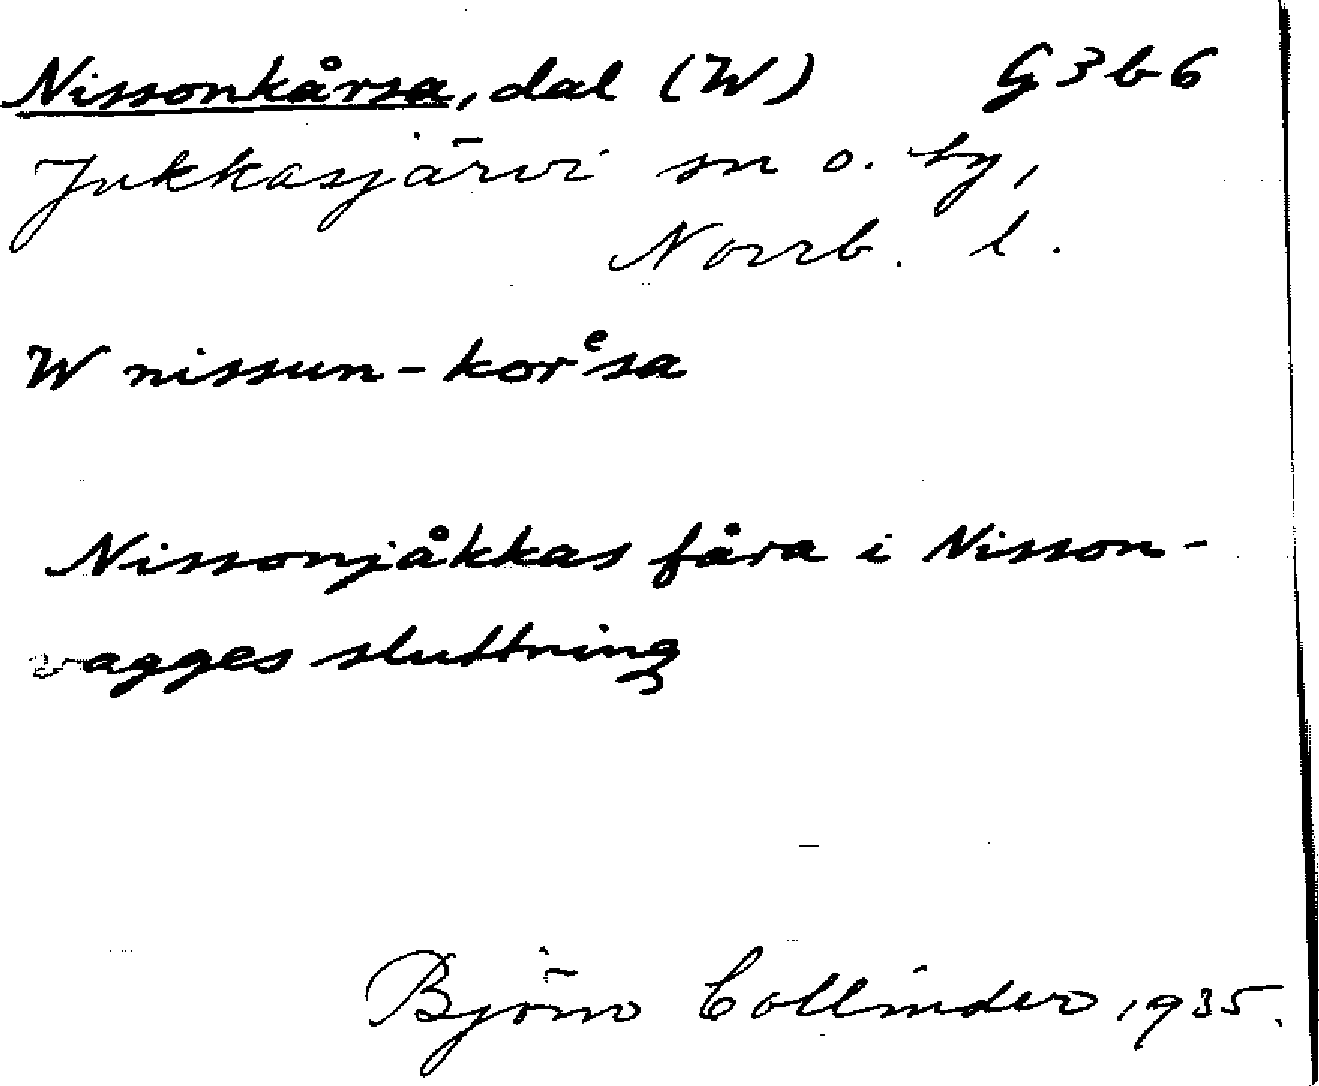 Nissonkårsa, dal (W) G3b6
Jukkasjärvi sn o. tg,
Norrb. l.
W nissun-korᵉsa
Nissonjåkkas fåra i Nisson-
vagges sluttning
Björn Collinder, 1935.